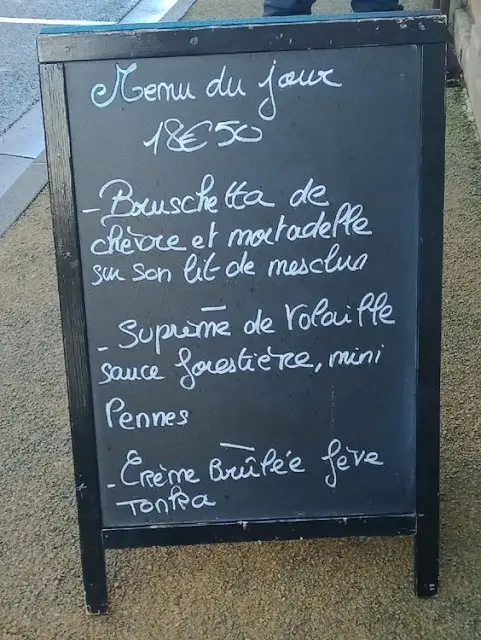 Menu du jour
18€50
- Bruschetta de
chèvre et mortadelle
sur son lit de mesclun
- Suprème de Volaille
sauce forestière, mini
Pennes
- Crème Brûlée fève
Tonka